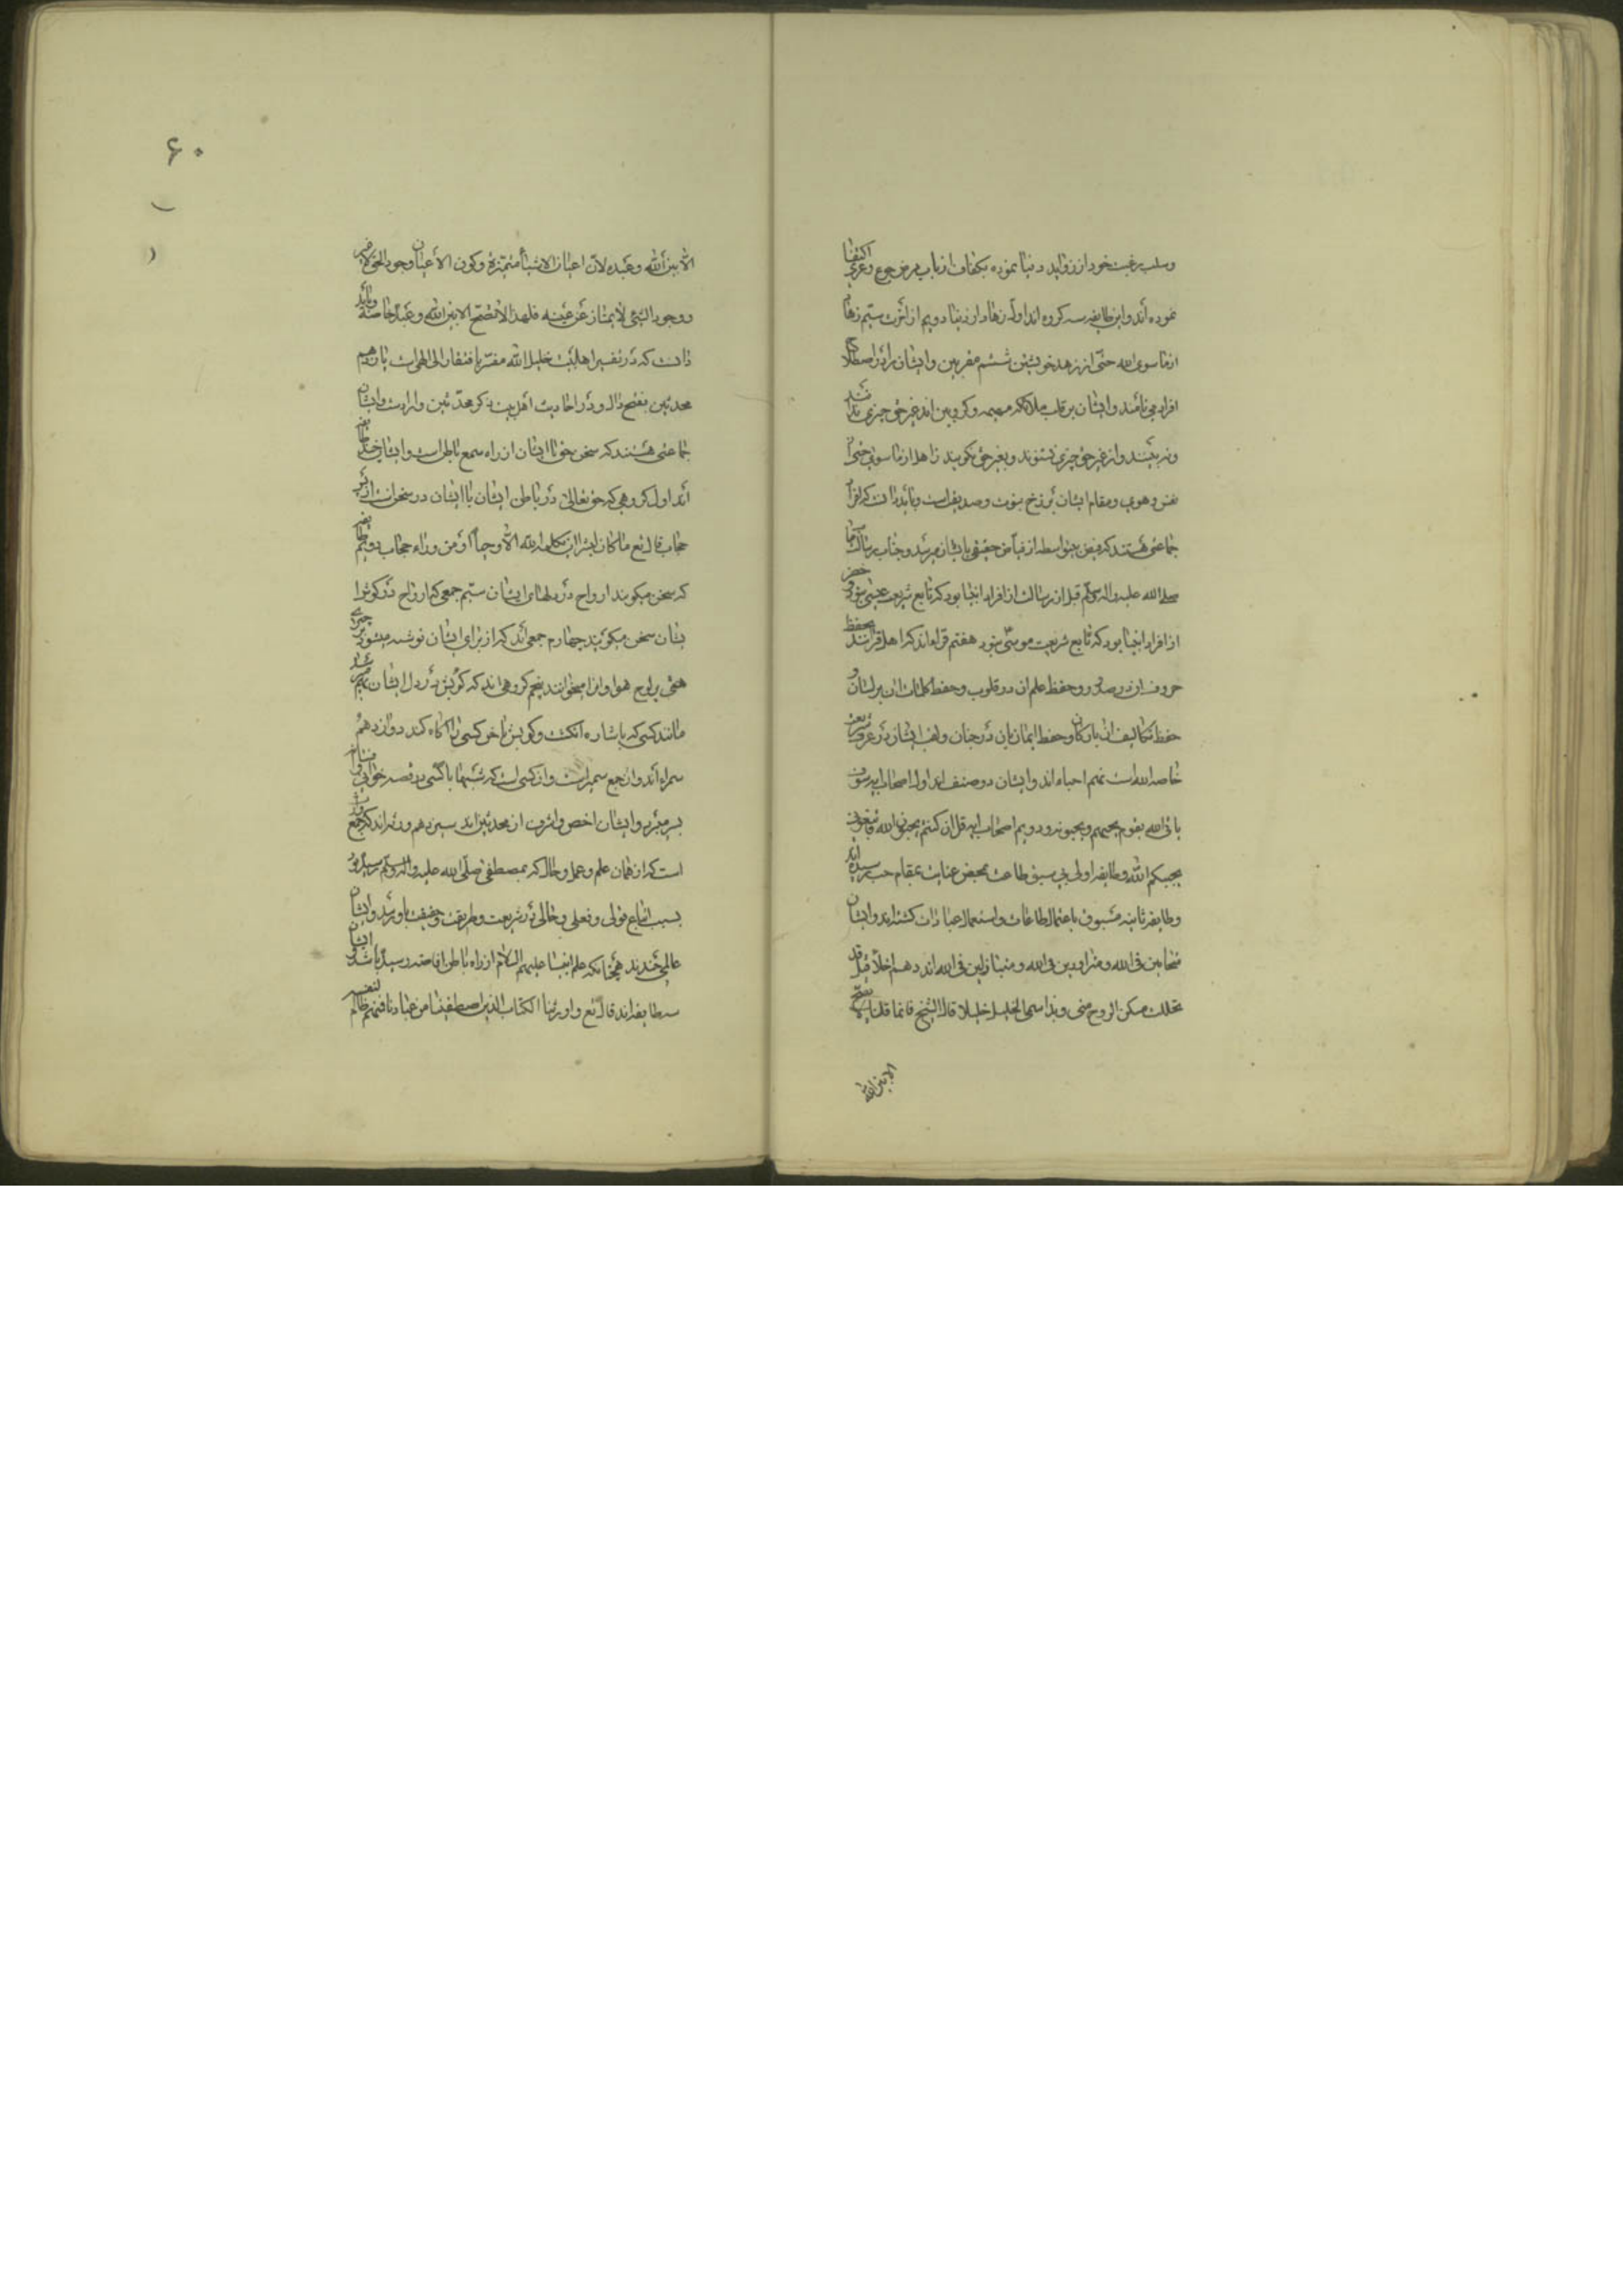 وسلب رغبت خود از زواید دنیا نموده بکفاف از باب مرض جوع وعری اکتفا
نموده‌اند و این طایفه سه کروه اند اول زهاد از دنیا دویم از اخرت سیّم زهاد
از ما سوی الله حتّی از زهد خویشتن ششم مقربین و ایشان را در اصطلاح
افراد می نامند و ایشان بر قلب ملائکه مهیمه و کروبین اند غیر حق چیزی ندانند
ونه بینند و از غیر حق چیزی نشنوند و بغیر حق نکویند زاهد از ما سوی حتی از
نفس و هوی و مقام ایشان برزخ نبوت و صدیقیه است و باید دانست که افراد
جماعتی هستند که فیض بیواسطه از فیاض حقیقی بایشان میرسد و جناب رسالت
صلی الله علیه واله وسلم قبل از رسالت از افراد انبیا بود که تابع شریعت عیسی بود و خضر
از افراد انبیا بود که تابع شریعت موسی بود هفتم قراءاند که اهل قرانند بحفظ
حروف ان در صدور و حفظ علم ان در قلوب و حفظ کلمات ان بر لسان و
حفظ تکالیف ان بارکان و حفظ ایمان بان در جنان و لقب ایشان در عرف شریعت
خاصه الله است نهم احباء اند و ایشان دو صنف اند اول اصحاب ایه سوف
یاتی الله بقوم یحبهم و یحبونه و دویم اصحاب ایه قل ان کنتم تحبون الله فاتبعونی
یحببکم الله و طایفه اولی بی سبق طاعت بمحض عنایت بمقام حب رسیده اند
وطایفه ثانیه مسبوق باعمال طاعات و استعمال عبادات کشته اند و ایشان
متحابین فی الله و متزاورین فی الله و متباذلین فی الله اند دهم اخلاء قیل قد
تخللت مسکن الروح منی وبذا سمی الخلیل خلیلا قال الشیخ فانما قلنا لا یصح
الا بین الله
۶۰
الا بین الله و عبده لان اعیان الاشیاء متمیزة و کون الاعیان وجود الحق لا غیر
و وجود الشیء لا یمتاز عن عینه فلهذا لا تصح الا بین الله و عبده خاصة و باید
دانست که در تفسیر اهلبیت خلیل الله مفسّر بافتقار الی الله است یازدهم
محدثین بفتح دال و در احادیث اهل بیت ذکر محدّثین وارد است و ایشان
جماعتی هستند که سخن حق با ایشان از راه سمع باطن است و ایشان چند طایفه
اند اول کروهی که حق تعالی در باطن ایشان با ایشان در سخن است از پس
حجاب قال تع ما کان لبشر ان یکلمه الله الّا وحیاً او من وراء حجاب دویم طایفه
که سخن میکویند ارواح در دلهای ایشان سیّم جمعی که ارواح در کوشها
بشان سخن میکویند چهارم جمعی اند که از برای ایشان نوشته میشود چیزی
هشتی بر لوح هوا و انرا میخوانند پنجم کروهی اند که کوئی در دل ایشان
مانند کسی که باشاره انکشت و کوشه چشم کسی را اکاه کند دوازدهم
سمراء اند و ان جمع سمیر است و ان کسی است که شبها با کسی در قصه خوانی
بسر میبرد و ایشان اخص و اشرف از محدثین اند سیزدهم ورثه اند که جمع
است که از همان علم و عمل و حال که بمصطفی صلّی الله علیه واله وسلّم رسیده بود
بسبب اتباع قولی و فعلی و حالی در شریعت و طریقت و حقیقت باو رسد و ایشان
عالمی چندند همچنانکه علم انبیا علیهم السلام از راه باطن افاضه رسیده باشد و ایشان
سه طایفه اند قال تع و اورثنا الکتاب الذین اصطفینا من عبادنا فمنهم ظالم لنفسه